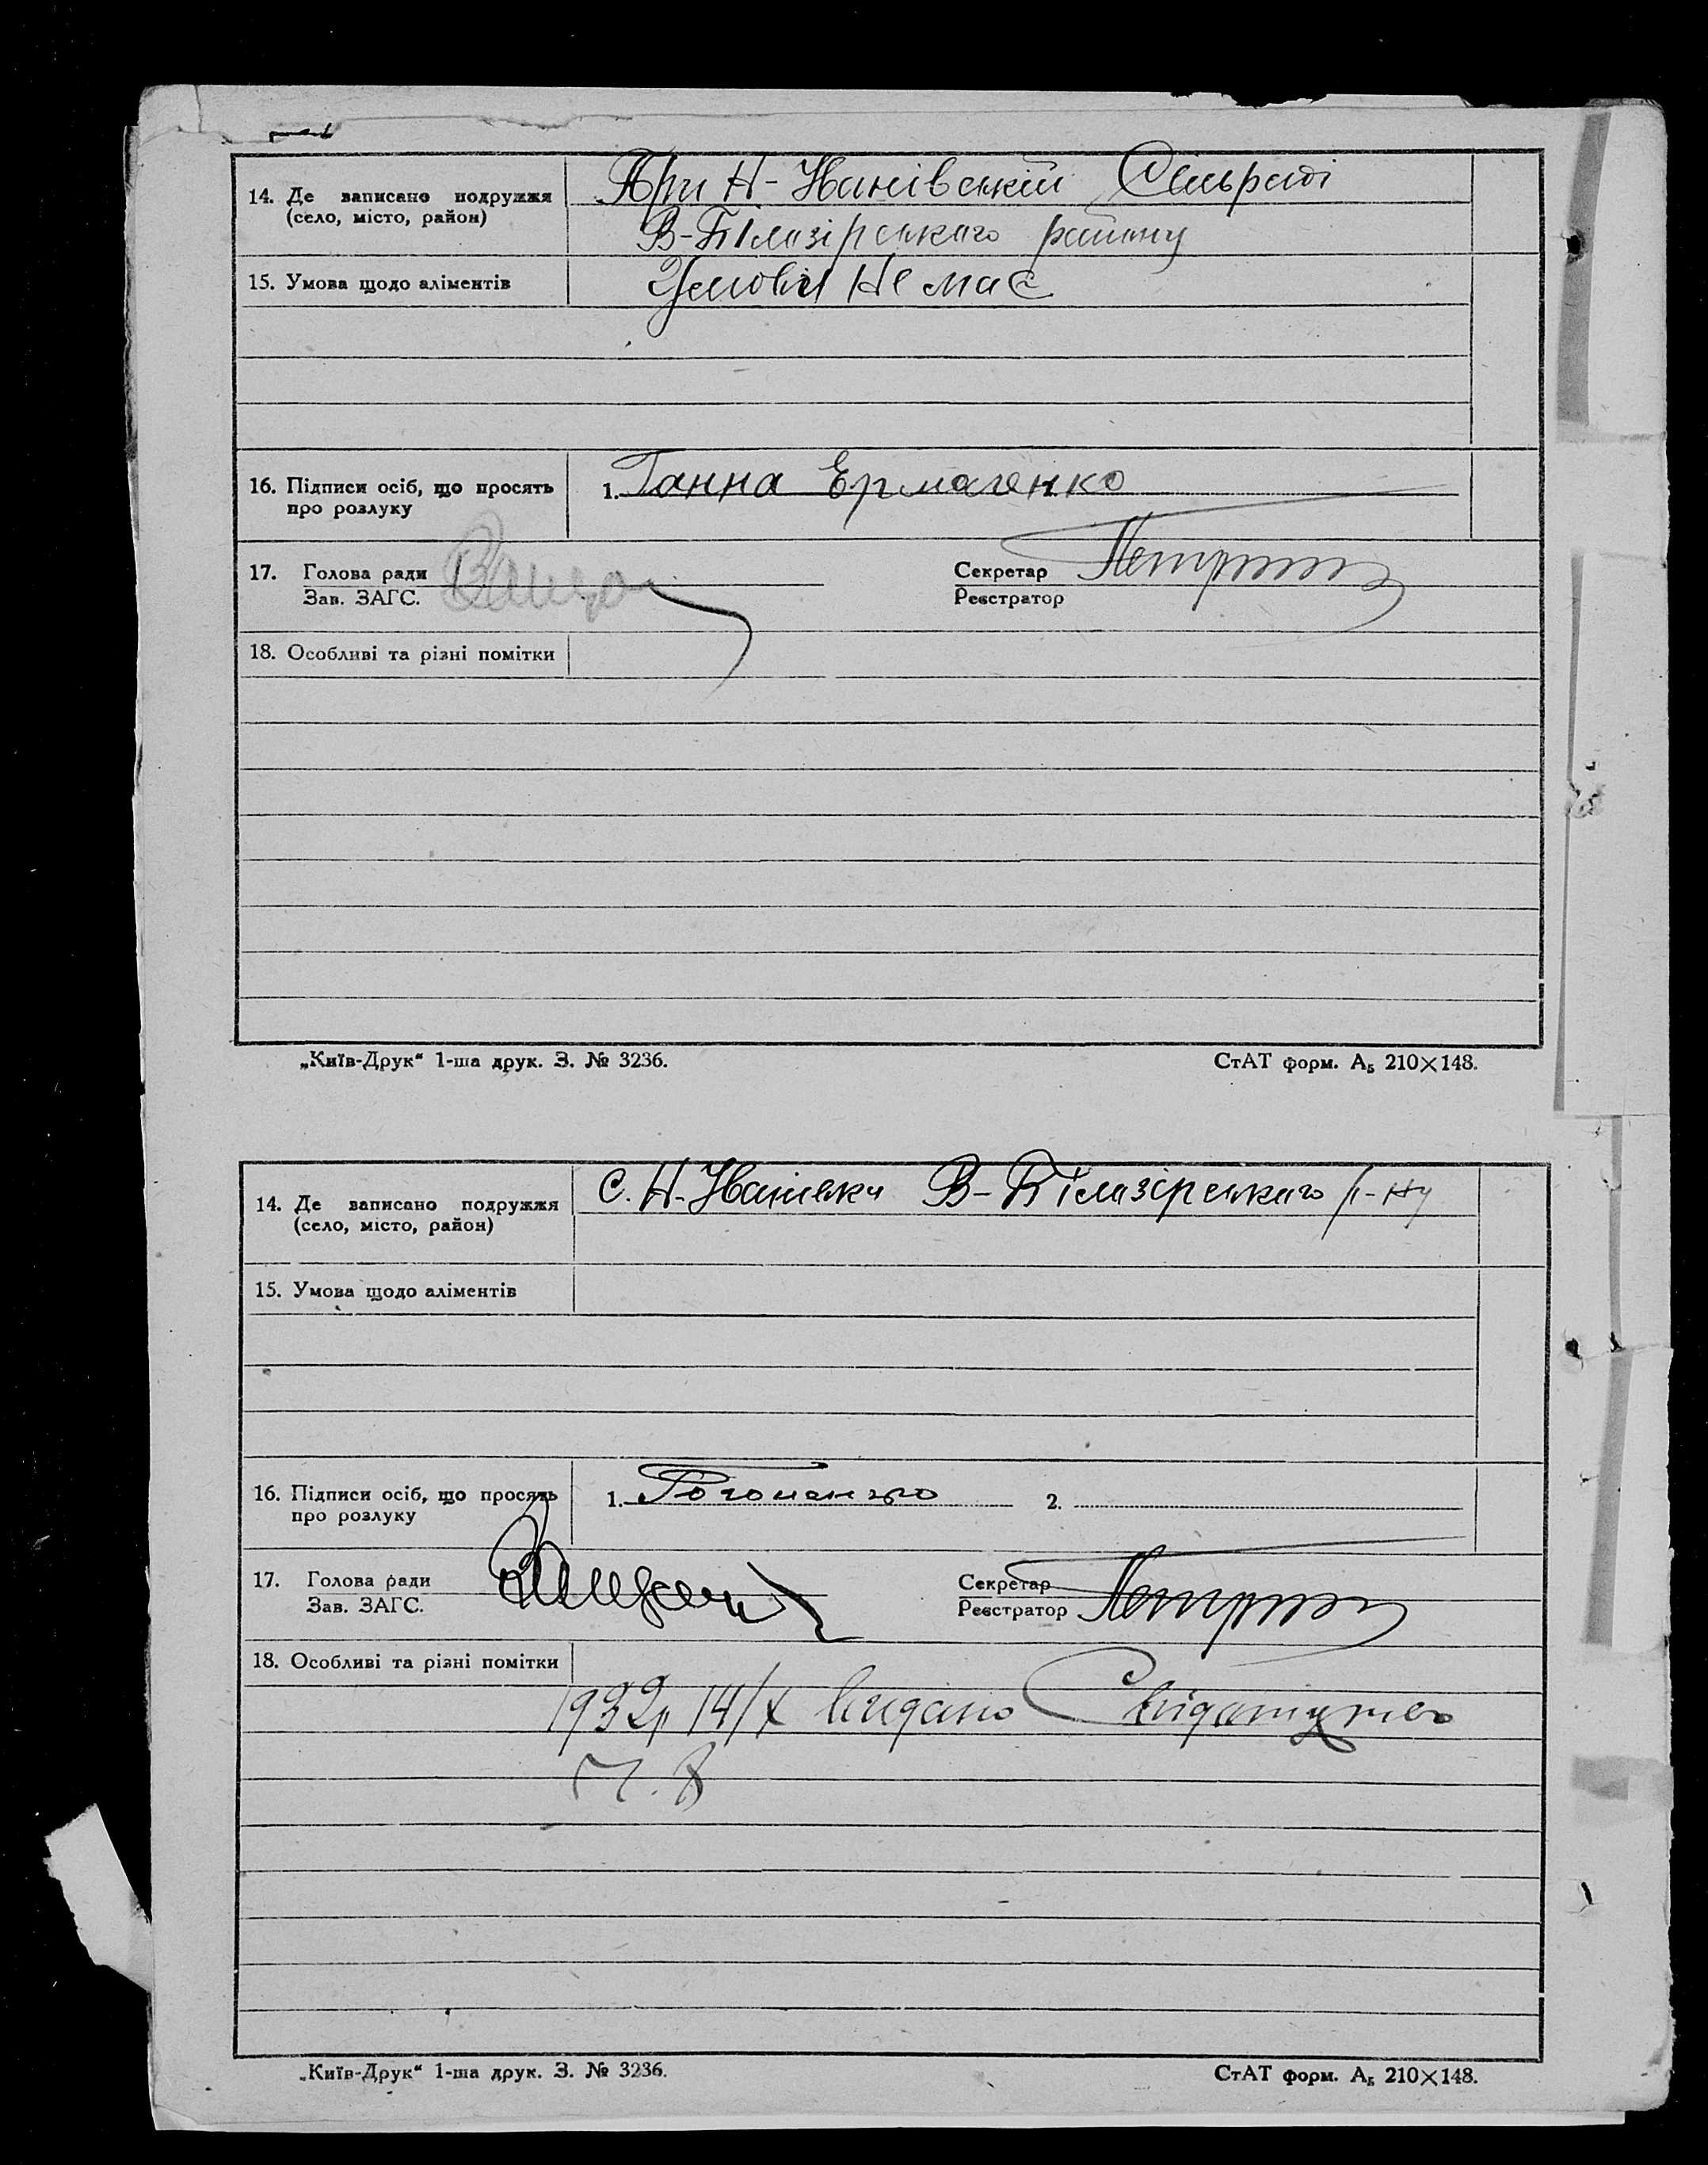 14. Де записано подружжя
(село, місто, район)
При Н-Іванівській Сільраді
В-Білозірського району
15. Умова щодо аліментів
Умови немає
16. Підписи осіб, що просять
про розлуку
1. Ганна Ермаченко
17. Голова ради
Зав. ЗАГС.
Секретар
Реєстратор
18. Особливі та різні помітки
„Київ-Друк“ 1-ша друк. З. № 3236.
СтАТ форм. А₅ 210×148.
с. Н-Іванівка В-Білозірського р-ну
14. Де записано подружжя
(село, місто, район)
15. Умова щодо аліментів
16. Підписи осіб, що просять
про розлуку
1.
2.
17. Голова ради
Зав. ЗАГС.
Секретар
Реєстратор
18. Особливі та різні помітки
1932р 14/X видано Свідоцтво
„Київ-Друк“ 1-ша друк. З. № 3236.
СтАТ форм. А₅ 210×148.